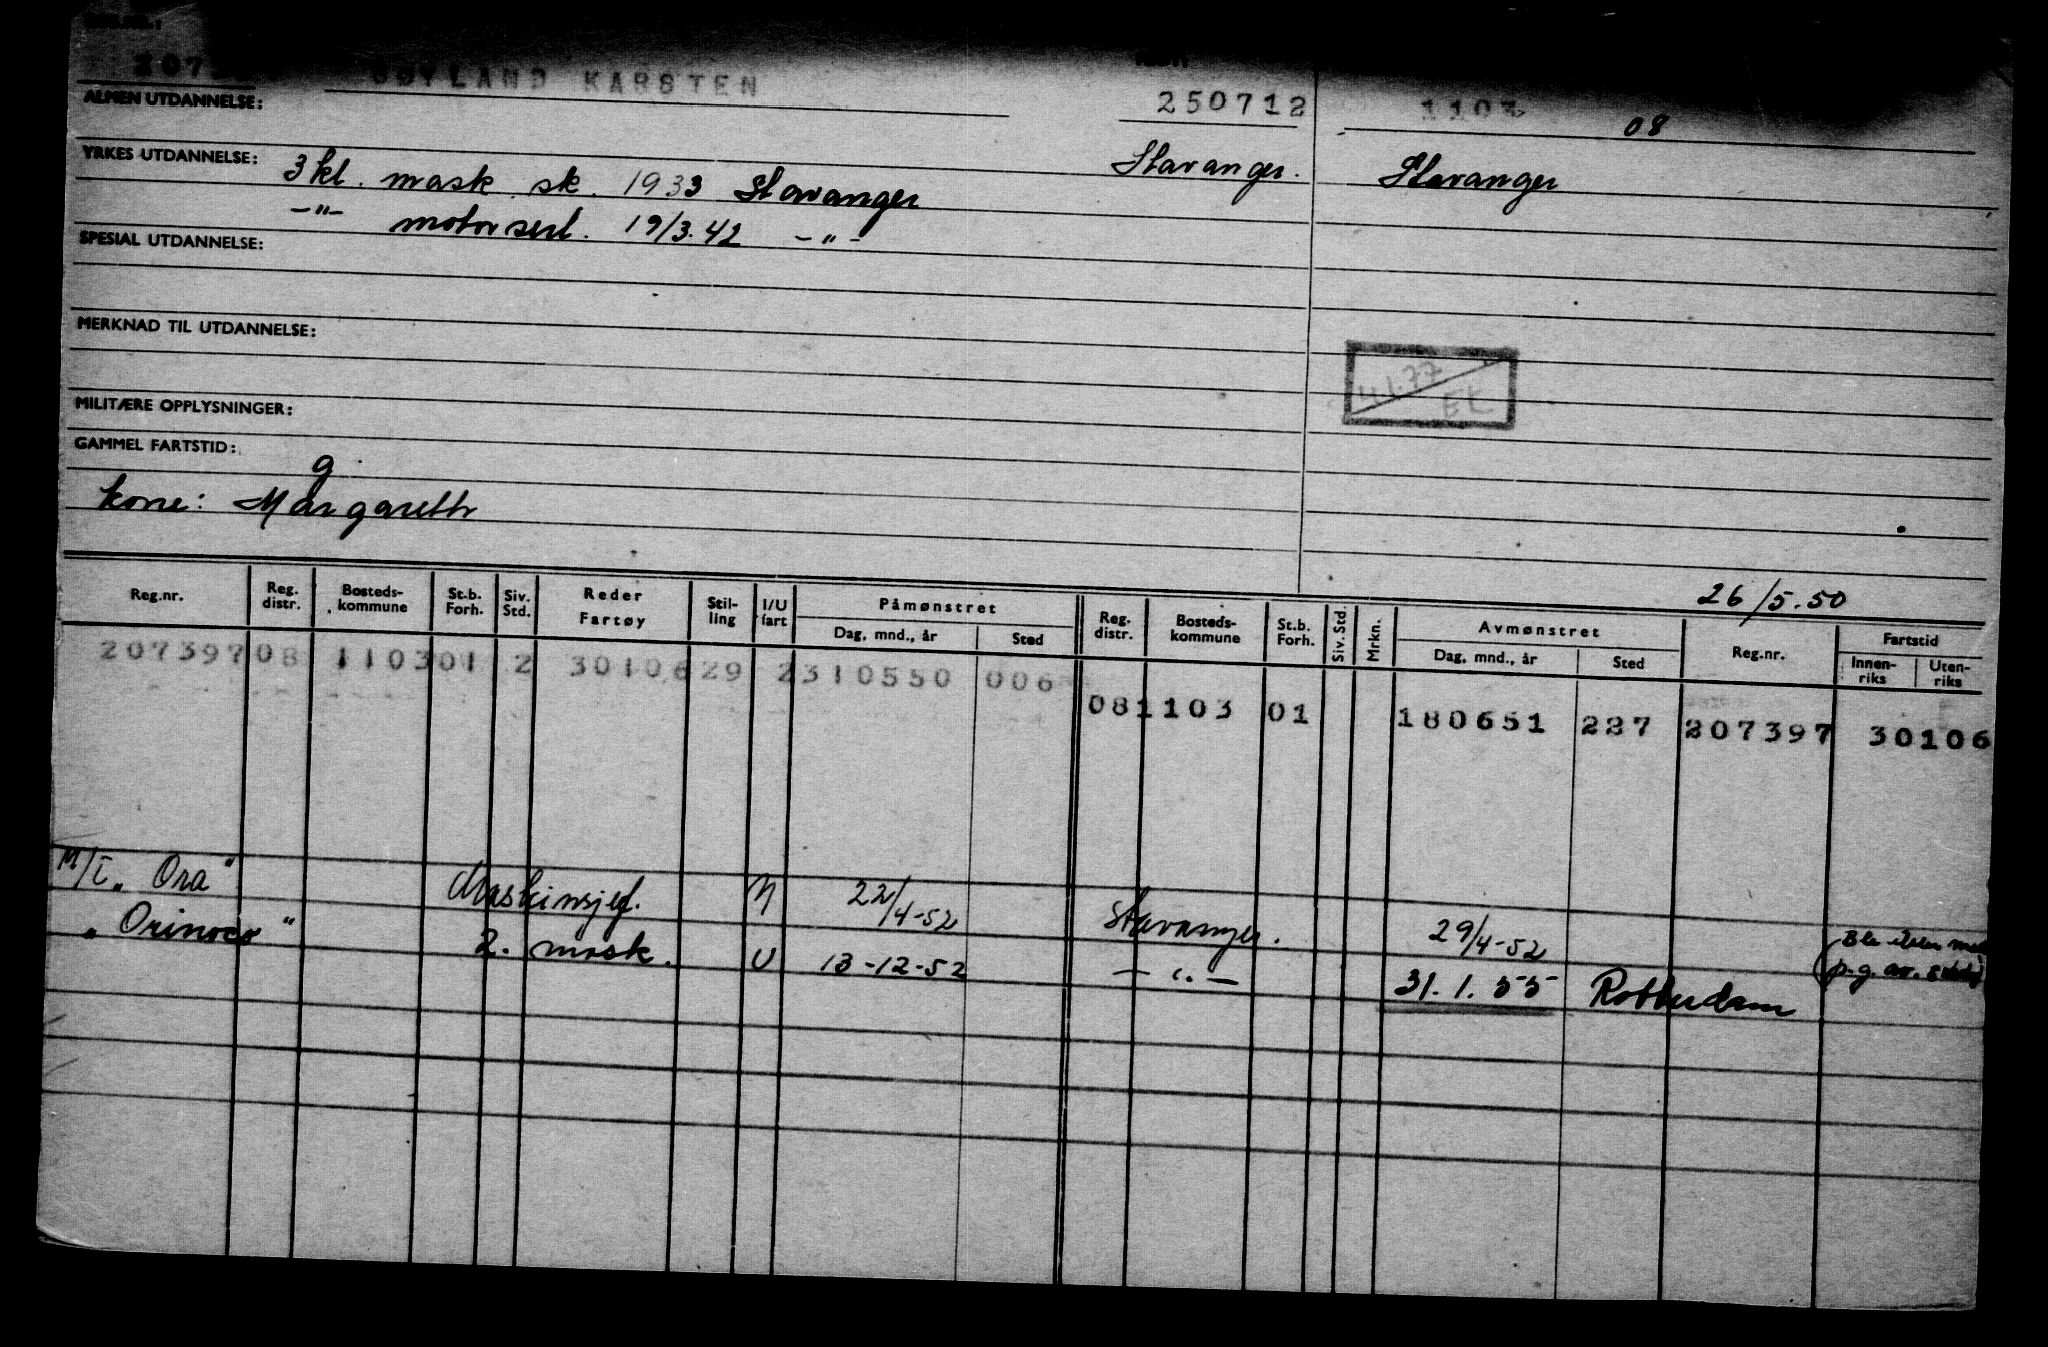 ØYLAND KARSTEN
250712
08
ALMEN UTDANNELSE:
YRKES UTDANNELSE: 3 kl. mask sk. 1933 Stavanger
Stavanger.
Stavanger
-"- motorserl. 19/3.42 -"-
SPESIAL UTDANNELSE:
MERKNAD TIL UTDANNELSE:
4.1.77
EL
MILITÆRE OPPLYSNINGER:
GAMMEL FARTSTID:
g.
kone: Margareth
26/5.50
Reg.nr. Reg. distr. Bosteds-kommune St.b. Forh. Siv. Std. Reder Fartøy Stil-ling I/U fart Påmønstret Dag, mnd., år Sted Reg. distr. Bosteds-kommune St.b. Forh. Siv. Std Mrkn. Avmønstret Dag, mnd., år Sted Reg.nr. Fartstid Innen-riks Uten-riks
207397 08 1103 01 2 30106 29 2 310550 006
08 1103 01 180651 227 207397 30106
M/T "Ora" Maskinsjef. N 22/4-52 Stavanger. 29/4-52
"Orinoco" 2. mask. U 13-12-52 -"- 31.1.55 Rotterdam
p.g. av.